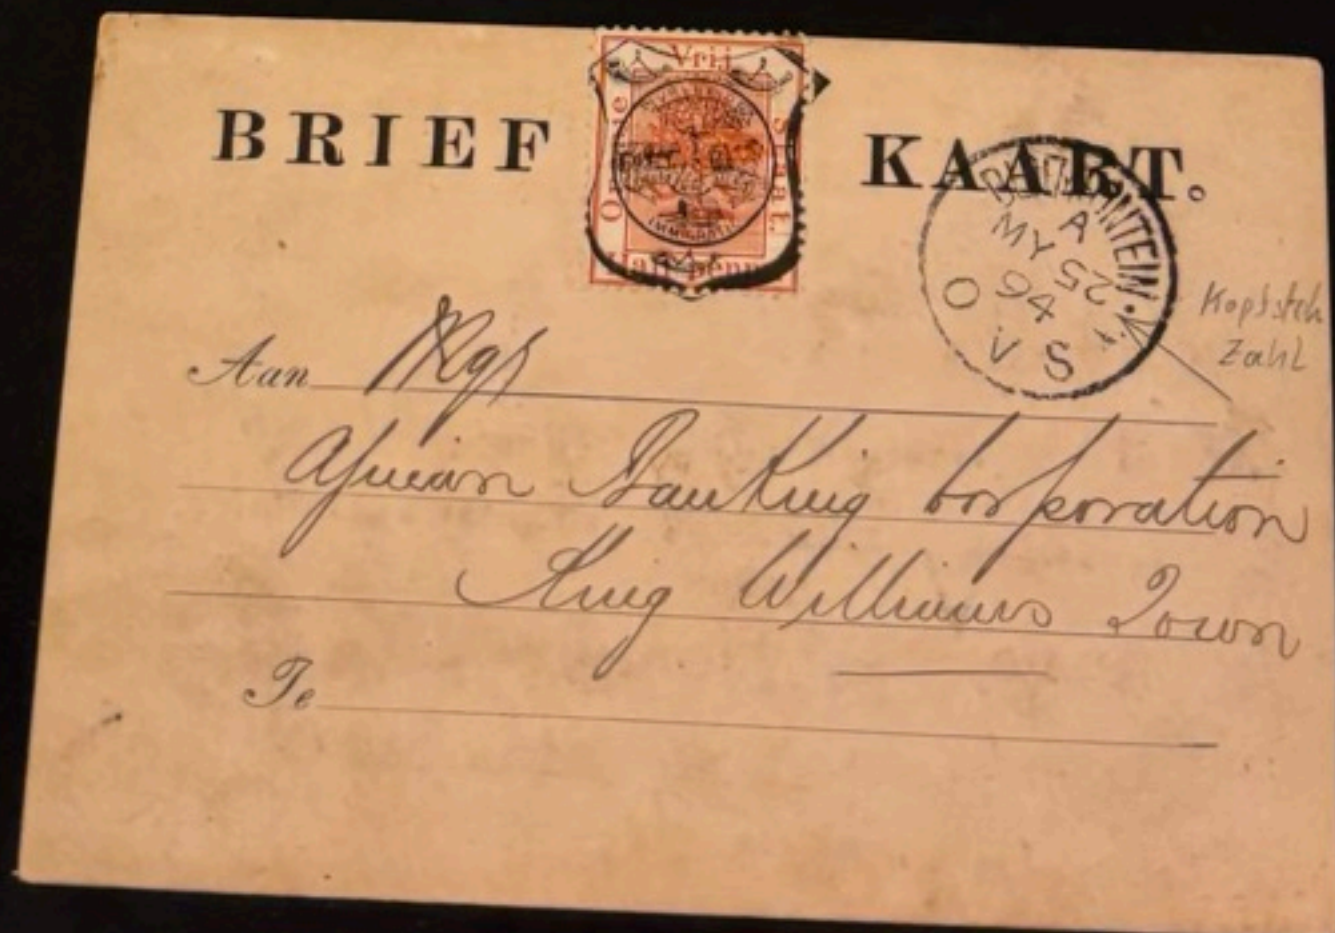 BRIEF KAART.
Vrij
Oranje Staat.
Half penny
IMMIGRATIE
BLOEMFONTEIN.
A
MY 25
94
O V S
Kopfsteh
Zahl
Aan Mgr
African Banking Corporation
King Williams Town
Te